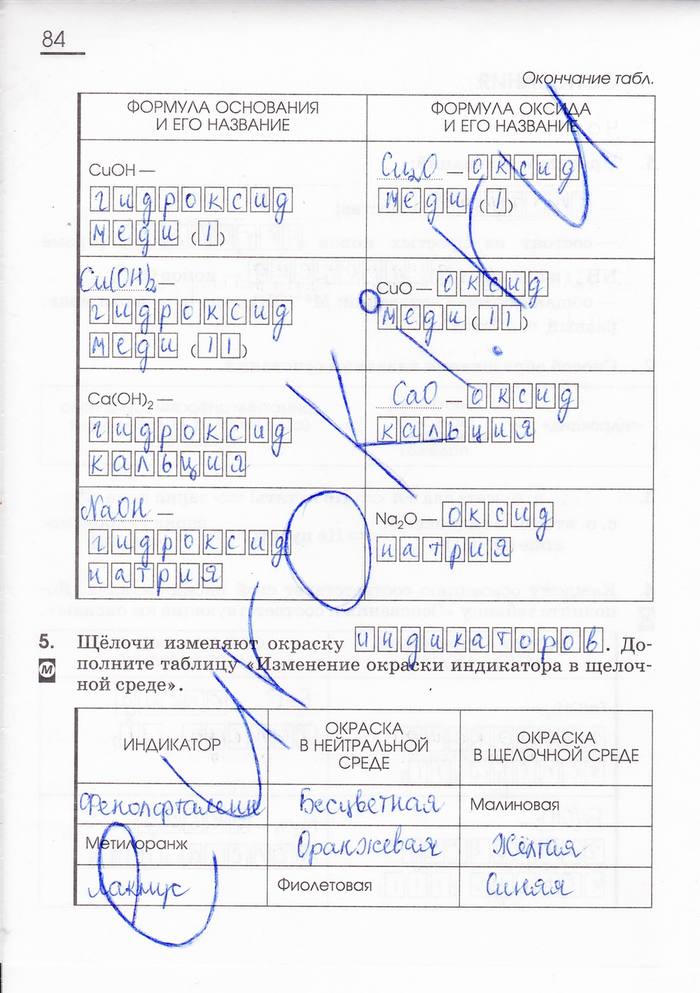 84
Окончание табл.
ФОРМУЛА ОСНОВАНИЯ
И ЕГО НАЗВАНИЕ
ФОРМУЛА ОКСИДА
И ЕГО НАЗВАНИЕ
CuOH —
гидроксид
меди (I)
Cu₂O — оксид
меди (I)
Cu(OH)₂ —
гидроксид
меди (II)
CuO — оксид
меди (II)
Ca(OH)₂ —
гидроксид
кальция
CaO — оксид
кальция
NaOH —
гидроксид
натрия
Na₂O — оксид
натрия
5. Щёлочи изменяют окраску индикаторов. До-
полните таблицу «Изменение окраски индикатора в щелоч-
М ной среде».
ИНДИКАТОР
ОКРАСКА
В НЕЙТРАЛЬНОЙ
СРЕДЕ
ОКРАСКА
В ЩЕЛОЧНОЙ СРЕДЕ
Фенолфталеин Бесцветная Малиновая
Метилоранж Оранжевая Жёлтая
Лакмус Фиолетовая Синяя